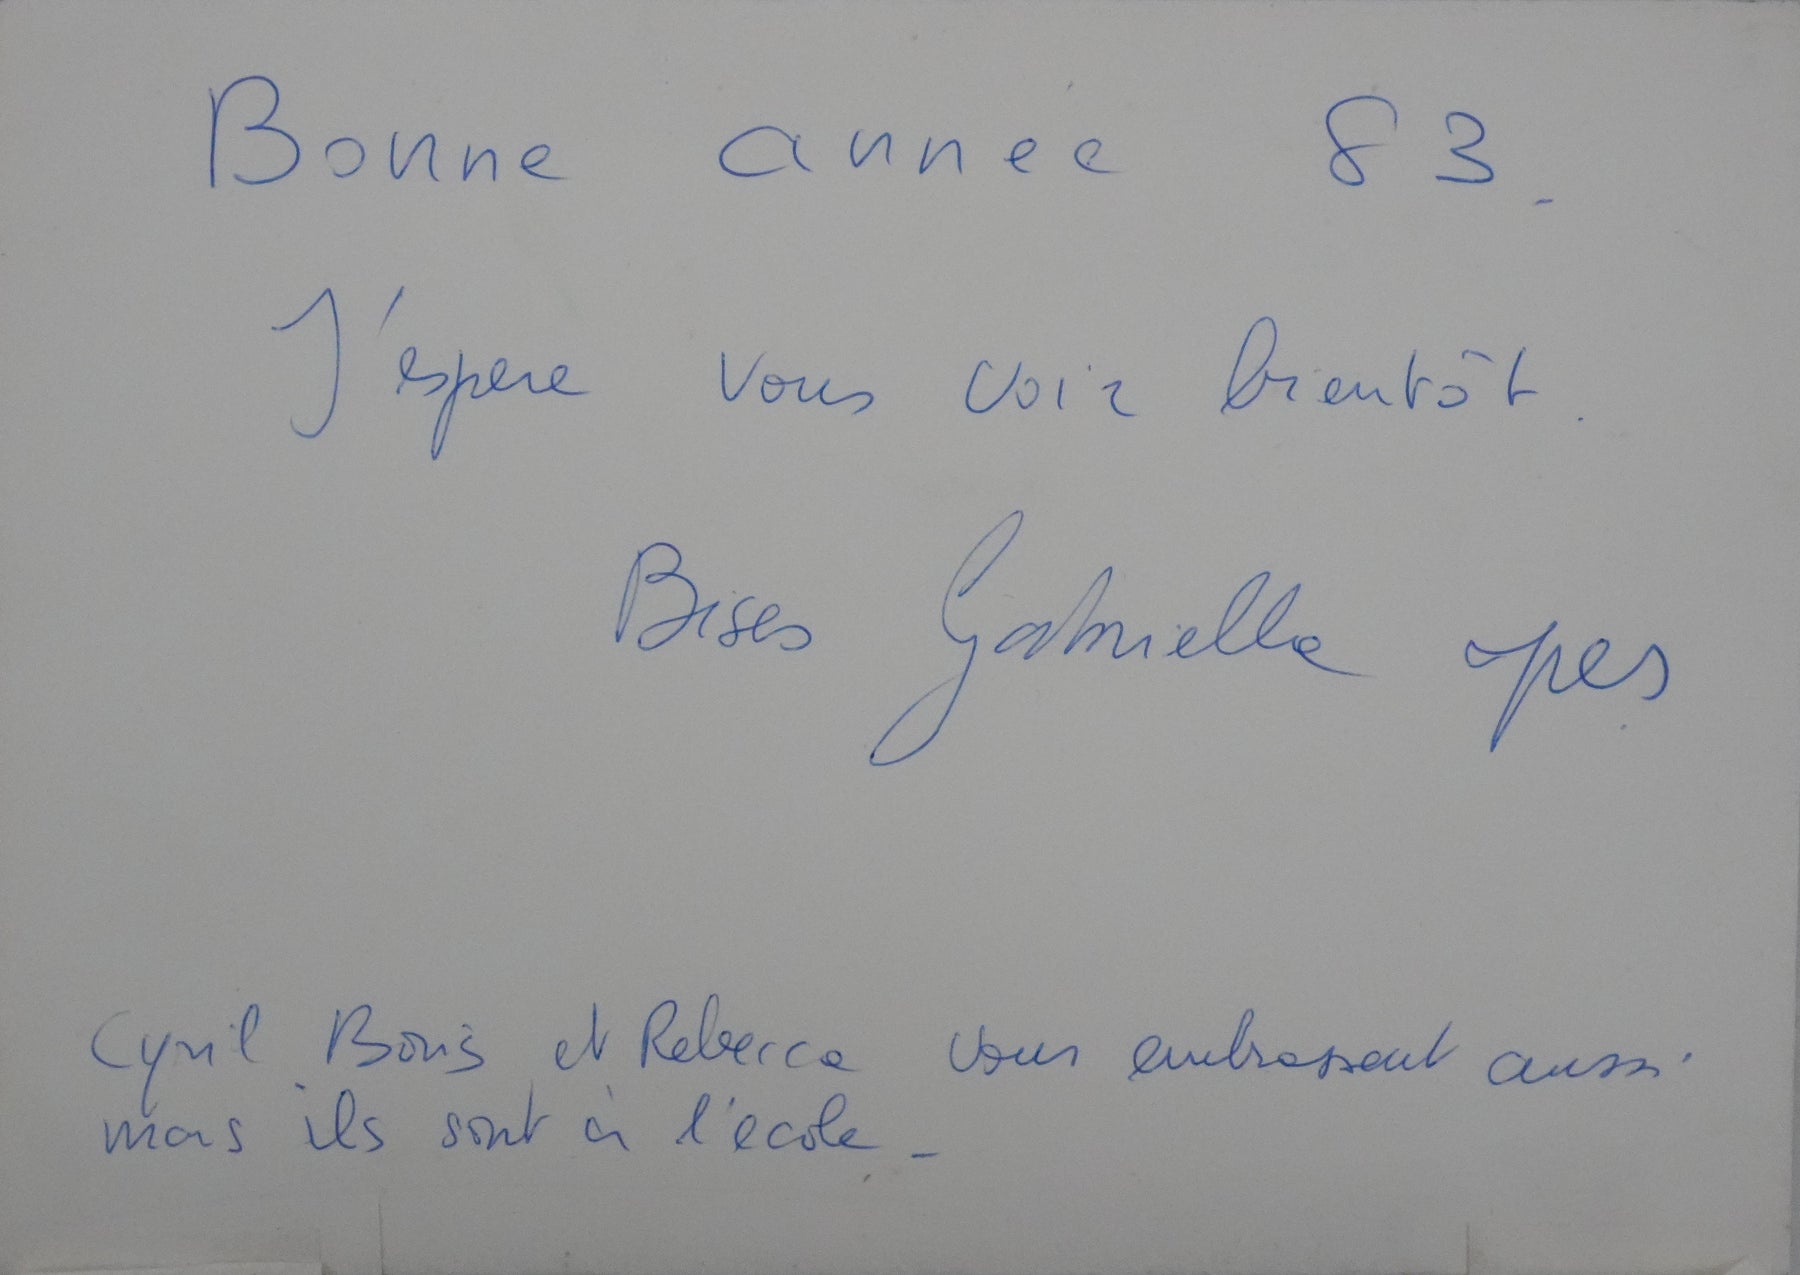 Bonne annee 83_
J'espere vous voir bientôt.
Bises Gabriella
Cyril Boris et Rebecca vous embrassent aussi
mais ils sont à l'école_